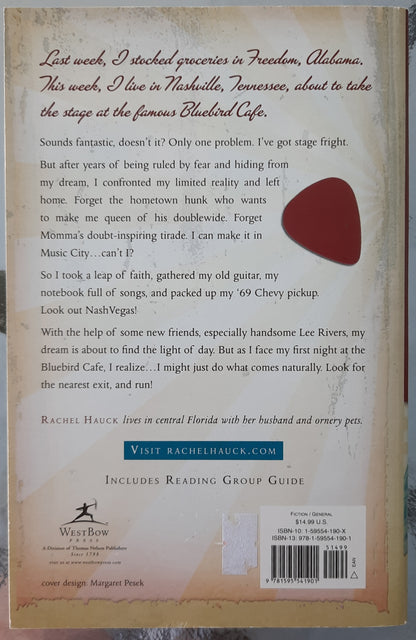 Last week, I stocked groceries in Freedom, Alabama.
This week, I live in Nashville, Tennessee, about to take
the stage at the famous Bluebird Cafe.
Sounds fantastic, doesn't it? Only one problem. I've got stage fright.
But after years of being ruled by fear and hiding from
my dream, I confronted my limited reality and left
home. Forget the hometown hunk who wants
to make me queen of his doublewide. Forget
Momma's doubt-inspiring tirade. I can make it in
Music City...can't I?
So I took a leap of faith, gathered my old guitar, my
notebook full of songs, and packed up my '69 Chevy pickup.
Look out NashVegas!
With the help of some new friends, especially handsome Lee Rivers, my
dream is about to find the light of day. But as I face my first night at the
Bluebird Cafe, I realize...I might just do what comes naturally. Look for
the nearest exit, and run!
RACHEL HAUCK lives in central Florida with her husband and ornery pets.
VISIT RACHELHAUCK.COM
INCLUDES READING GROUP GUIDE
WESTBOW
PRESS
A Division of Thomas Nelson Publishers
Since 1798
visit us at westbowpress.com
cover design: Margaret Pesek
FICTION / GENERAL
$14.99 U.S.
ISBN-10: 1-59554-190-X
ISBN-13: 978-1-59554-190-1
51499
EAN
9 781595 541901